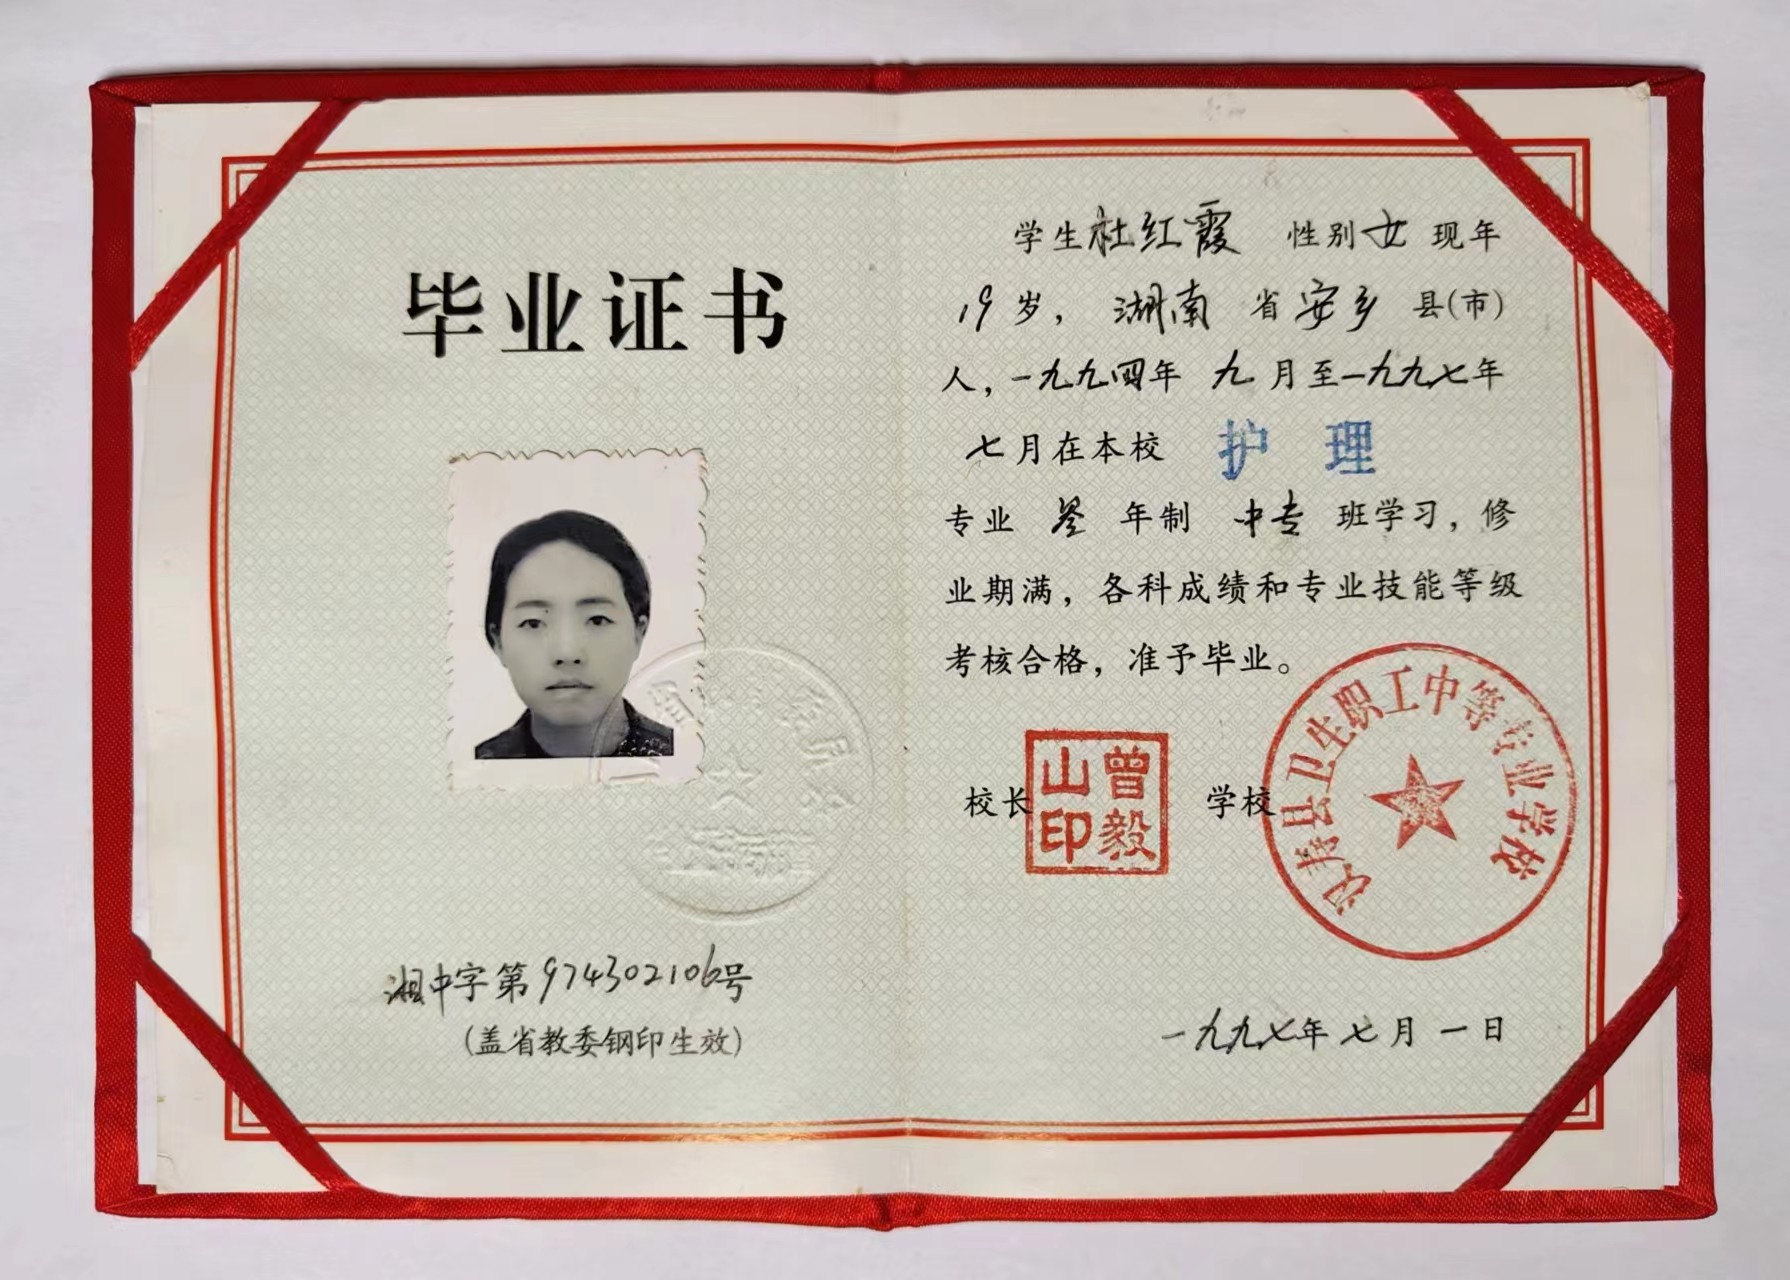 毕业证书
湘中字第974302106号
(盖省教委钢印生效)
学生杜红霞 性别女 现年
19岁，湖南省安乡县(市)
人，一九九四年九月至一九九七年
七月在本校 护理
专业 叁 年制 中专 班学习，修
业期满，各科成绩和专业技能等级
考核合格，准予毕业。
校长 曾毅山印
学校
汉寿县卫生职工中等专业学校
一九九七年七月一日